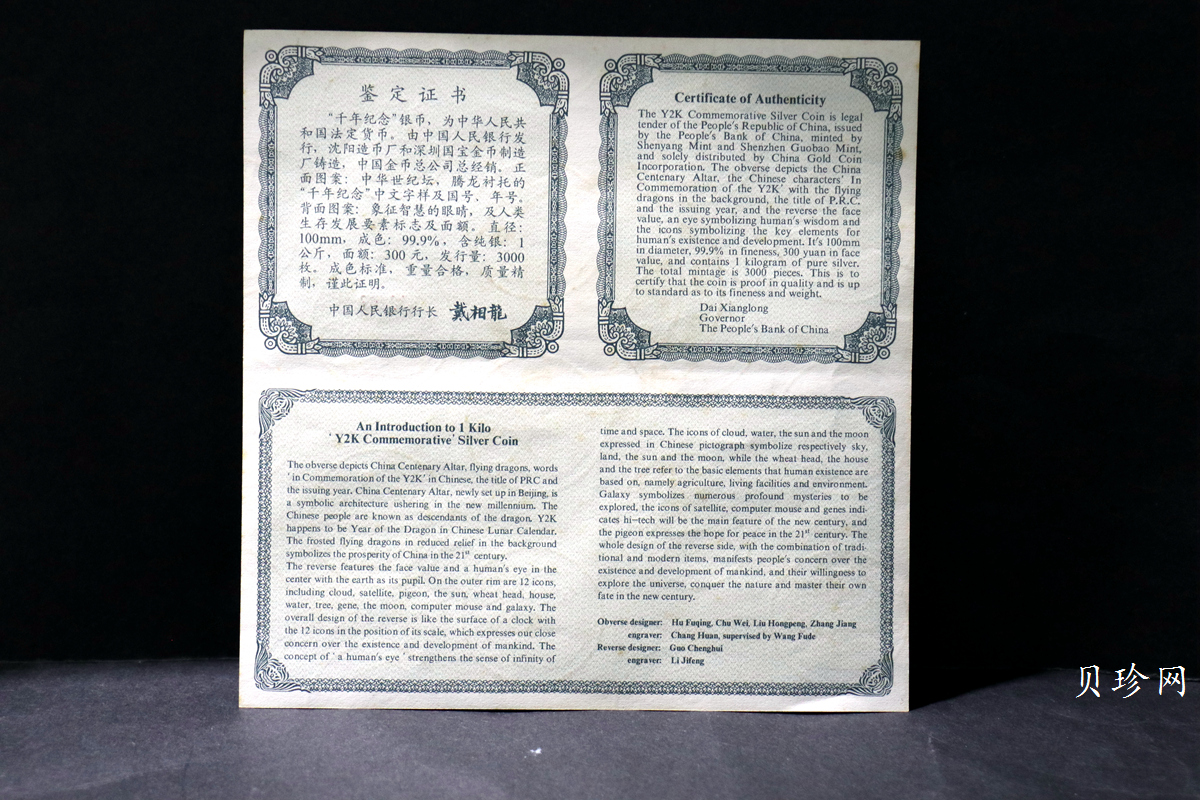 鉴定证书
“千年纪念”银币，为中华人民共
和国法定货币。由中国人民银行发
行，沈阳造币厂和深圳国宝金币制造
厂铸造，中国金币总公司总经销。正
面图案：中华世纪坛，腾龙衬托的
“千年纪念”中文字样及国号、年号。
背面图案：象征智慧的眼睛，及人类
生存发展要素标志及面额。直径：
100mm，成色：99.9%，含纯银：1
公斤，面额：300元，发行量：3000
枚。成色标准，重量合格，质量精
制，谨此证明。
中国人民银行行长 戴相龍
Certificate of Authenticity
The Y2K Commemorative Silver Coin is legal
tender of the People's Republic of China, issued
by the People's Bank of China, minted by
Shenyang Mint and Shenzhen Guobao Mint,
and solely distributed by China Gold Coin
Incorporation. The obverse depicts the China
Centenary Altar, the Chinese characters' In
Commemoration of the Y2K' with the flying
dragons in the background, the title of P.R.C.
and the issuing year, and the reverse the face
value, an eye symbolizing human's wisdom and
the icons symbolizing the key elements for
human's existence and development. It's 100mm
in diameter, 99.9% in fineness, 300 yuan in face
value, and contains 1 kilogram of pure silver.
The total mintage is 3000 pieces. This is to
certify that the coin is proof in quality and is up
to standard as to its fineness and weight.
Dai Xianglong
Governor
The People's Bank of China
An Introduction to 1 Kilo
'Y2K Commemorative' Silver Coin
The obverse depicts China Centenary Altar, flying dragons, words
'in Commemoration of the Y2K' in Chinese, the title of PRC and
the issuing year. China Centenary Altar, newly set up in Beijing, is
a symbolic architecture ushering in the new millennium. The
Chinese people are known as descendants of the dragon. Y2K
happens to be Year of the Dragon in Chinese Lunar Calendar.
The frosted flying dragons in reduced relief in the background
symbolizes the prosperity of China in the 21st century.
The reverse features the face value and a human's eye in the
center with the earth as its pupil. On the outer rim are 12 icons,
including cloud, satellite, pigeon, the sun, wheat head, house,
water, tree, gene, the moon, computer mouse and galaxy. The
overall design of the reverse is like the surface of a clock with
the 12 icons in the position of its scale, which expresses our close
concern over the existence and development of mankind. The
concept of 'a human's eye' strengthens the sense of infinity of
time and space. The icons of cloud, water, the sun and the moon
expressed in Chinese pictograph symbolize respectively sky,
land, the sun and the moon, while the wheat head, the house
and the tree refer to the basic elements that human existence are
based on, namely agriculture, living facilities and environment.
Galaxy symbolizes numerous profound mysteries to be
explored, the icons of satellite, computer mouse and genes indi-
cates hi-tech will be the main feature of the new century, and
the pigeon expresses the hope for peace in the 21st century. The
whole design of the reverse side, with the combination of tradi-
tional and modern items, manifests people's concern over the
existence and development of mankind, and their willingness to
explore the universe, conquer the nature and master their own
fate in the new century.
Obverse designer: Hu Fuqing, Chu Wei, Liu Hongpeng, Zhang Jiang
engraver: Chang Huan, supervised by Wang Fude
Reverse designer: Guo Chenghui
engraver: Li Jifeng
贝珍网